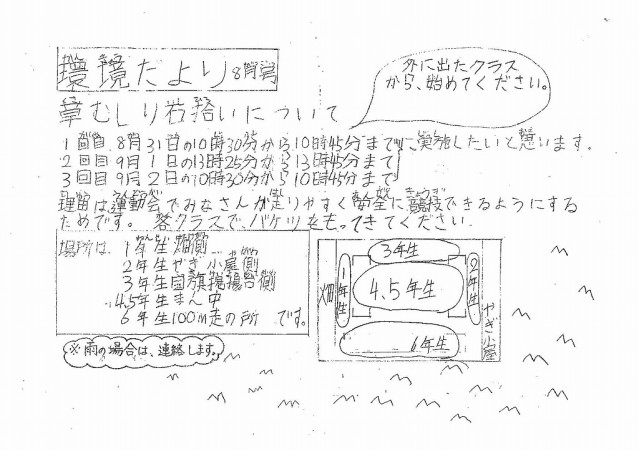 環境たより8月号
外に出たクラス
から、始めてください。
草むしり石拾いについて
1回目8月31日の10時30分から10時45分まで
2回目9月1日の13時25分から13時45分まで
3回目9月2日の10時30分から10時45分まで
に実施したいと思います。
理由は運動会でみなさんが走りやすく安全に競技できるようにする
ためです。各クラスでバケツをもってきてください。
場所は、1年生畑側
2年生やぎ小屋側
3年生国旗掲揚台側
4.5年生まん中
6年生100m走の所です。
※雨の場合は、連絡します。
3年生
畑
1年生
4.5年生
2年生
やぎ小屋
6年生